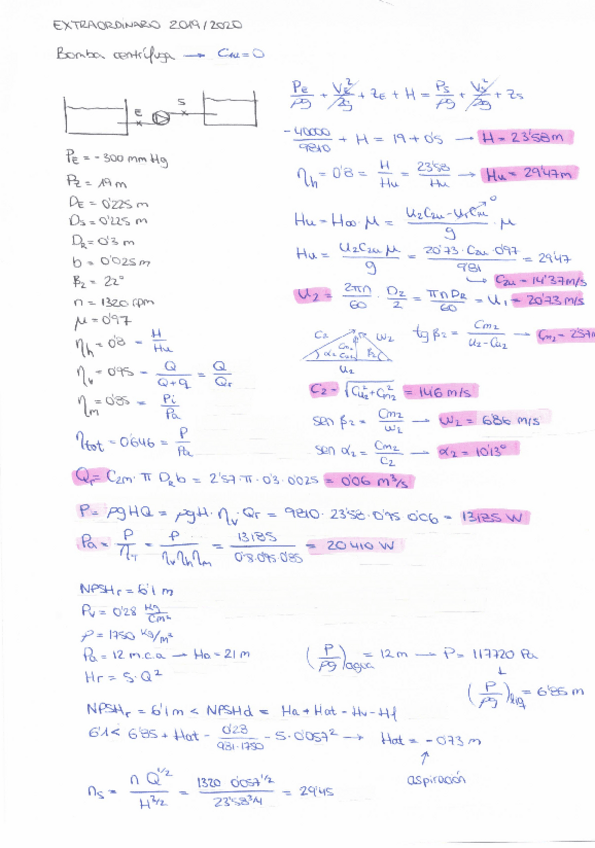 EXTRAORDINARIO 2019/2020
Bomba centrífuga → C1u = 0
E S
PE = -300 mm Hg
PZ = 19 m
DE = 0'225 m
DS = 0'225 m
D2 = 0'3 m
b = 0'025 m
β2 = 22°
n = 1320 rpm
μ = 0'97
ηh = 0'8 = H/Hu
ηv = 0'95 = Q/(Q+q) = Q/Qr
ηm = 0'85 = Pi/Pa
ηtot = 0'646 = P/Pa
PE/ρg + VE²/2g + zE + H = PS/ρg + VS²/2g + zS
-40000/9810 + H = 19 + 0'5 → H = 23'58 m
ηh = 0'8 = H/Hu = 23'58/Hu → Hu = 29'47 m
Hu = H∞ · μ = (U2C2u - U1C1u)/g · μ
0
Hu = U2C2u μ/g = 20'73 · C2u · 0'97/9'81 = 29'47
C2u = 14'37 m/s
U2 = 2πn/60 · D2/2 = πnD2/60 = U1 = 20'73 m/s
C2 W2 Cm2 Cu2 α2 β2 U2
tg β2 = Cm2/(U2 - Cu2) → Cm2 = 2'57 m
C2 = √(Cu2² + Cm2²) = 14'6 m/s
sen β2 = Cm2/W2 → W2 = 6'86 m/s
sen α2 = Cm2/C2 → α2 = 10'13°
Qr = C2m · π D2 b = 2'57 · π · 0'3 · 0'025 = 0'06 m³/s
P = ρgHQ = ρgH · ηv · Qr = 9810 · 23'58 · 0'95 · 0'06 = 13185 W
Pa = P/ηT = P/(ηv ηh ηm) = 13185/(0'8 · 0'95 · 0'85) = 20410 W
NPSHr = 6'1 m
Pv = 0'28 Kg/cm²
ρ = 1750 Kg/m³
Pa = 12 m.c.a → Ha = 21 m
Hr = 5 · Q²
(P/ρg)agua = 12 m → P = 117720 Pa
(P/ρg)liq = 6'85 m
NPSHr = 6'1 m < NPSHd = Ha + Hat - Hv - Hf
6'1 < 6'85 + Hat - 0'28/(9'81 · 1750) - 5 · 0'057² → Hat = -0'73 m
aspiración
ns = n Q^1/2/H^3/4 = 1320 · 0'057^1/2/23'58^3/4 = 29'45